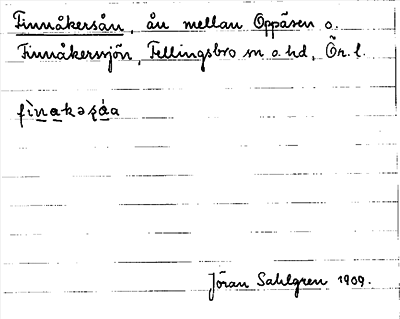 Finnåkersån, ån mellan Oppåven o.
Finnåkersjön, Fellingsbro sn o. hd, Ör. l.
fìnakəʂáa
Jöran Sahlgren 1909.